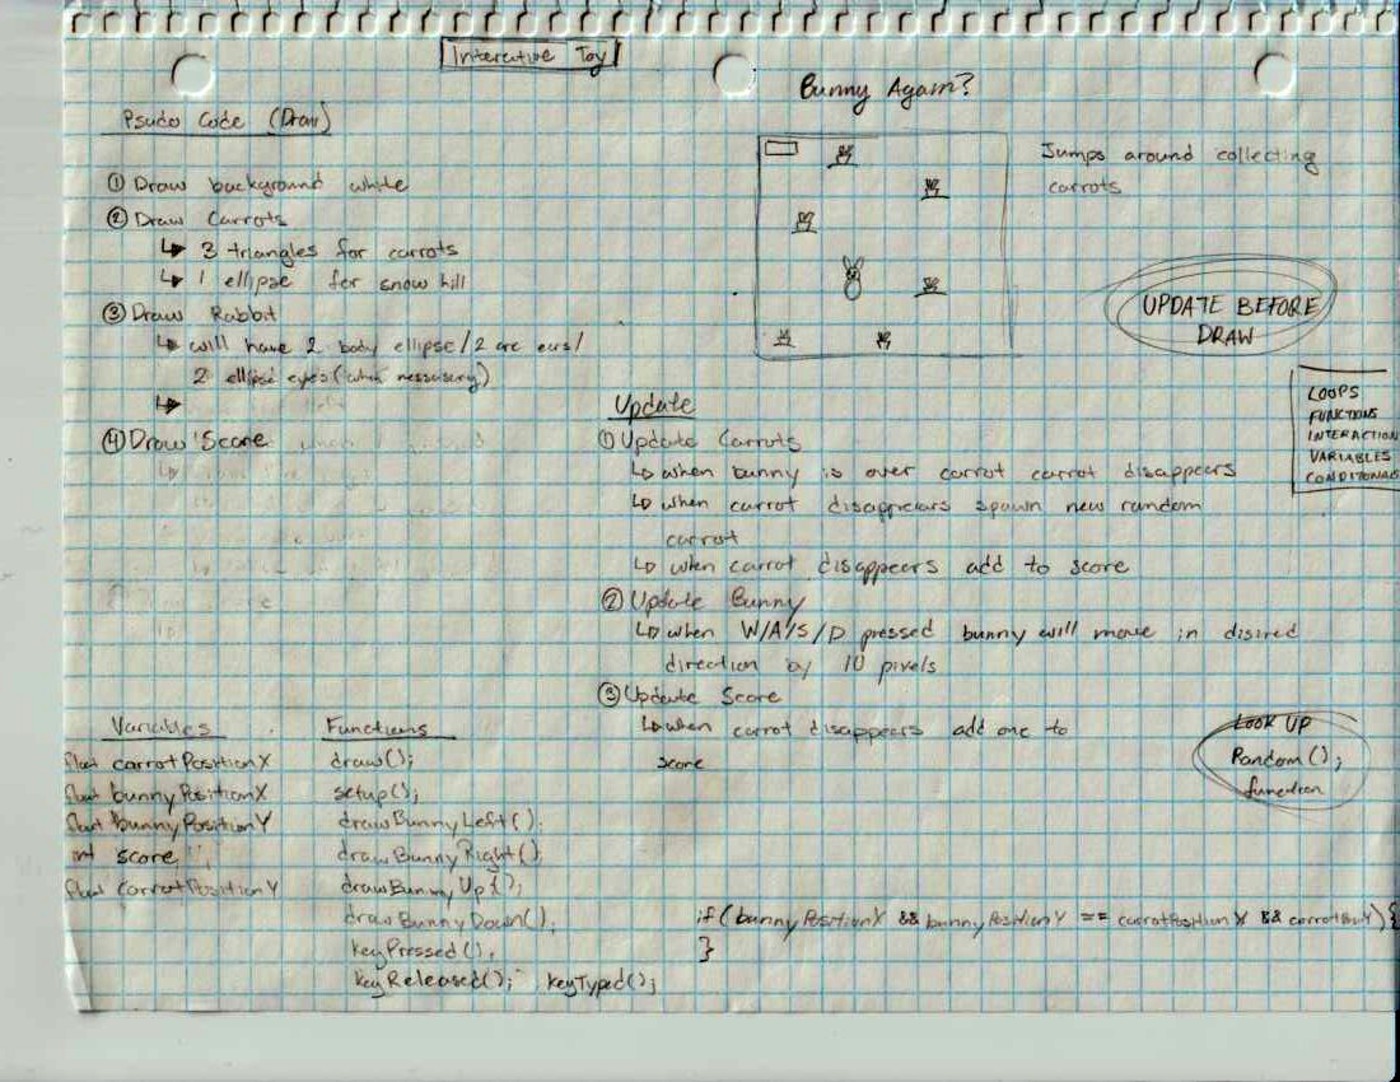 Interactive Toy
Bunny Again?
Psudo Code (Draw)
① Draw background white
② Draw Carrots
↳ 3 triangles for carrots
↳ 1 ellipse for snow hill
③ Draw Rabbit
↳ will have 2 body ellipse/2 arc ears/
2 ellipse eyes (when nessusery)
↳
④ Draw Score
Jumps around collecting
carrots
UPDATE BEFORE
DRAW
LOOPS
FUNCTIONS
INTERACTION
VARIABLES
CONDITIONALS
Update
① Update Carrots
↳ when bunny is over carrot carrot disappears
↳ when carrot disappears spawn new random
carrot
↳ when carrot disappeers add to score
② Update Bunny
↳ when W/A/S/D pressed bunny will move in disired
direction by 10 pixels
③ Update Score
↳ when carrot disappears add one to
score
LOOK UP
Random();
function
Variables
float carrotPositionX
float bunnyPositionX
float bunnyPositionY
int score
float carrotPositionY
Functions
draw();
setup();
drawBunnyLeft();
drawBunnyRight();
drawBunnyUp();
drawBunnyDown();
keyPressed();
keyReleased(); keyTyped();
if(bunnyPositionX && bunnyPositionY == carrotPositionX && {
}